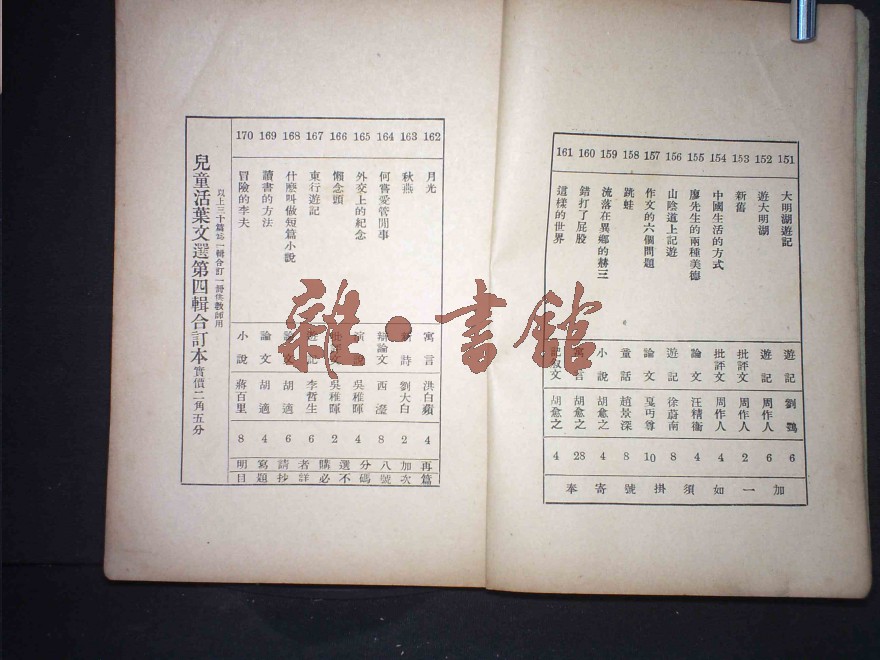 151 大明湖遊記 遊記 劉鶚 6
152 遊大明湖 遊記 周作人 6
153 新舊 批評文 周作人 2
154 中國生活的方式 批評文 周作人 4
155 廖先生的兩種美德 論文 汪精衞 4
156 山陰道上記遊 遊記 徐蔚南 8
157 作文的六個問題 論文 夏丏尊 10
158 跳蛙 童話 趙景深 8
159 流落在異鄉的赫三 小說 胡愈之 4
160 錯打了屁股 寓言 胡愈之 28
161 這樣的世界 記叙文 胡愈之 4
加一如須掛號寄奉
162 月光 寓言 洪白蘋 4
163 秋燕 新詩 劉大白 2
164 何嘗愛管閒事 辯論文 西瀅 8
165 外交上的紀念 演說 吳稚暉 4
166 懶念頭 批評文 吳稚暉 2
167 東行遊記 遊記 李哲生 6
168 什麼叫做短篇小說 論文 胡適 6
169 讀書的方法 論文 胡適 4
170 冒險的李夫 小說 蔣百里 8
再加八分選購者請寫明
篇次號碼不必詳抄題目
以上三十篇為一輯合訂一冊供教師用
兒童活葉文選第四輯合訂本實價二角五分
雜·書館